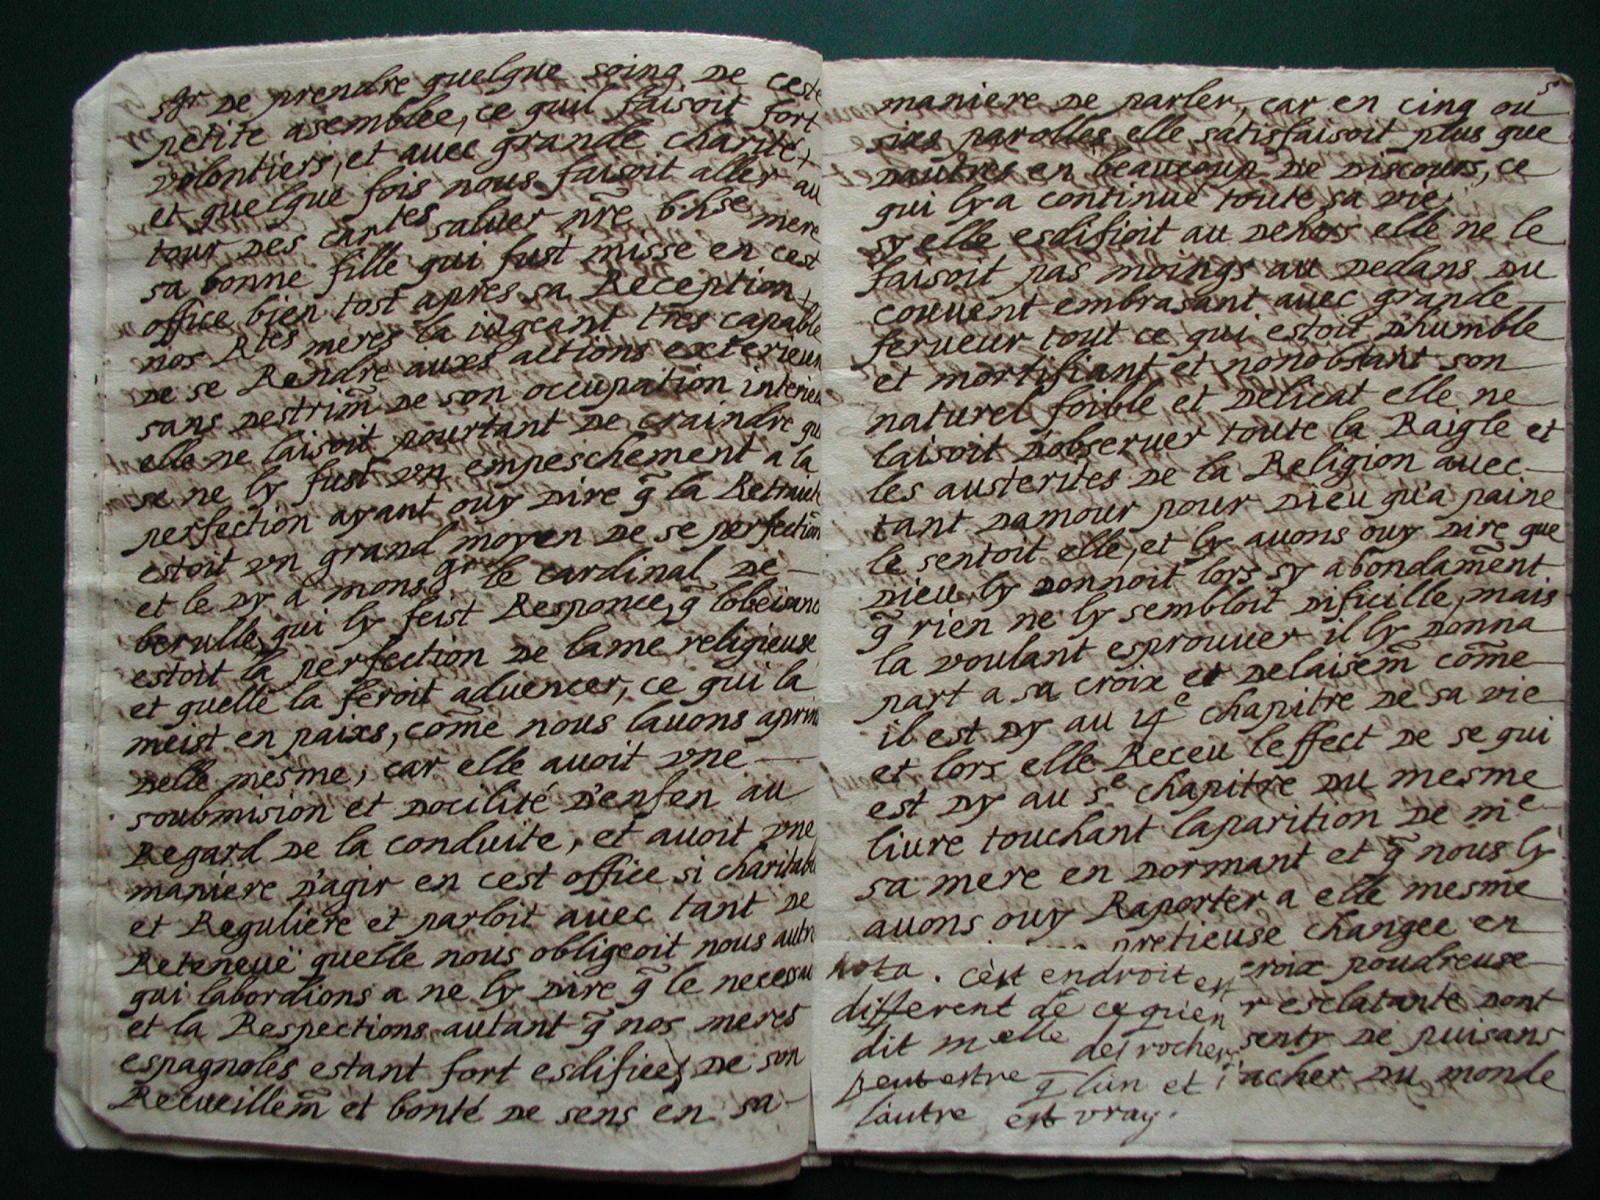 sgr de prendre quelque soing de ceste
petite asemblee, ce quil faisoit fort
volontiers, et auec grande charité,
et quelque fois nous faisoit aller au
tour des cartes saluer nr̃e bhse mere
sa bonne fille qui fust misse en cest
office bien tost apres sa Reception,
nos Rtes meres la iugeant tres capable
de se Rendre auxs actions exterieur
sans destrim̃ de son occupation interieu
elle ne laisoit pourtant de craindre qu
se ne ly fust vn empeschement a la
perfection ayant ouy dire q̃ la Retraict
estoit vn grand moyen de se perfection
et le dy a monsgr le cardinal de
berulle qui ly feist Responce, q̃ lobeisanc
estoit la perfection de lame religieuse
et quelle la feroit aduencer, ce qui la
meist en paixs, com̃e nous lauons aprin
delle mesme, car elle auoit vne
soubmision et docilité d'enfen au
Regard de la conduite, et auoit vne
maniere d'agir en cest office si charitabl
et Reguliere et parloit auec tant de
Reteneue quelle nous obligeoit nous autre
qui labordions a ne ly dire q̃ le necessai
et la Respections autant q̃ nos meres
espagnoles estant fort esdifiees de son
Recueillem̃ et bonté de sens en sa
5
maniere de parler, car en cinq ou
sixs parolles elle satisfaisoit plus que
dautres en beaucoup de discours, ce
qui ly a continué toute sa vie,
sy elle esdifioit au dehos elle ne le
faisoit pas moings au dedans du
couuent embrasant auec grande
ferueur tout ce qui estoit d'humble
et mortifiant et nonobstant son
naturel foible et delicat elle ne
laisoit dobseruer toute la Raigle et
les austerites de la Religion auec
tant damour pour dieu qu'a paine
le sentoit elle, et ly auons ouy dire que
dieu ly donnoit lors sy abondam̃ent
q̃ rien ne ly sembloit dificille, mais
la voulant esprouuer il ly donna
part a sa croix et delaisem̃ com̃e
il est dy au 4e chapitre de sa vie
et lors elle Receu leffect de se qui
est dy au 5e chapitre du mesme
liure touchant laparition de me
sa mere en dormant et q̃ nous ly
auons ouy Raporter a elle mesme
pretieuse changee en
croix poudreuse
r esclatante dont
senty de puisans
acher du monde
nota. cest endroit est
different de ce qu'en
dit melle des roches
peutestre q̃ l'un et
l'autre est vray.